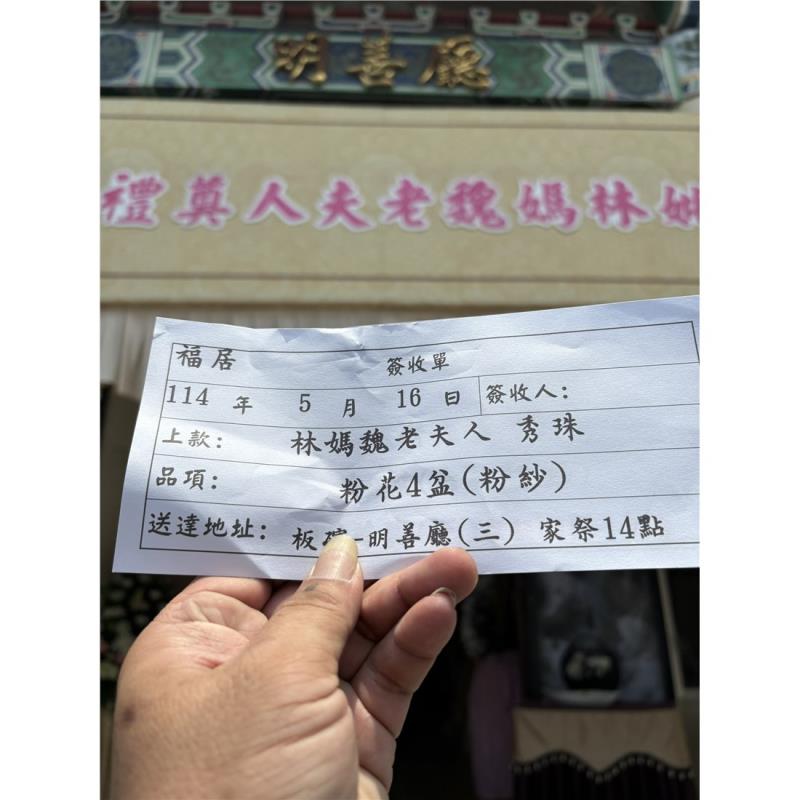 明善廳
禮奠人夫老魏媽林姊
福居 簽收單
114 年 5 月 16 日 簽收人:
上款: 林媽魏老夫人 秀珠
品項: 粉花4盆(粉紗)
送達地址: 板殯-明善廳(三) 家祭14點